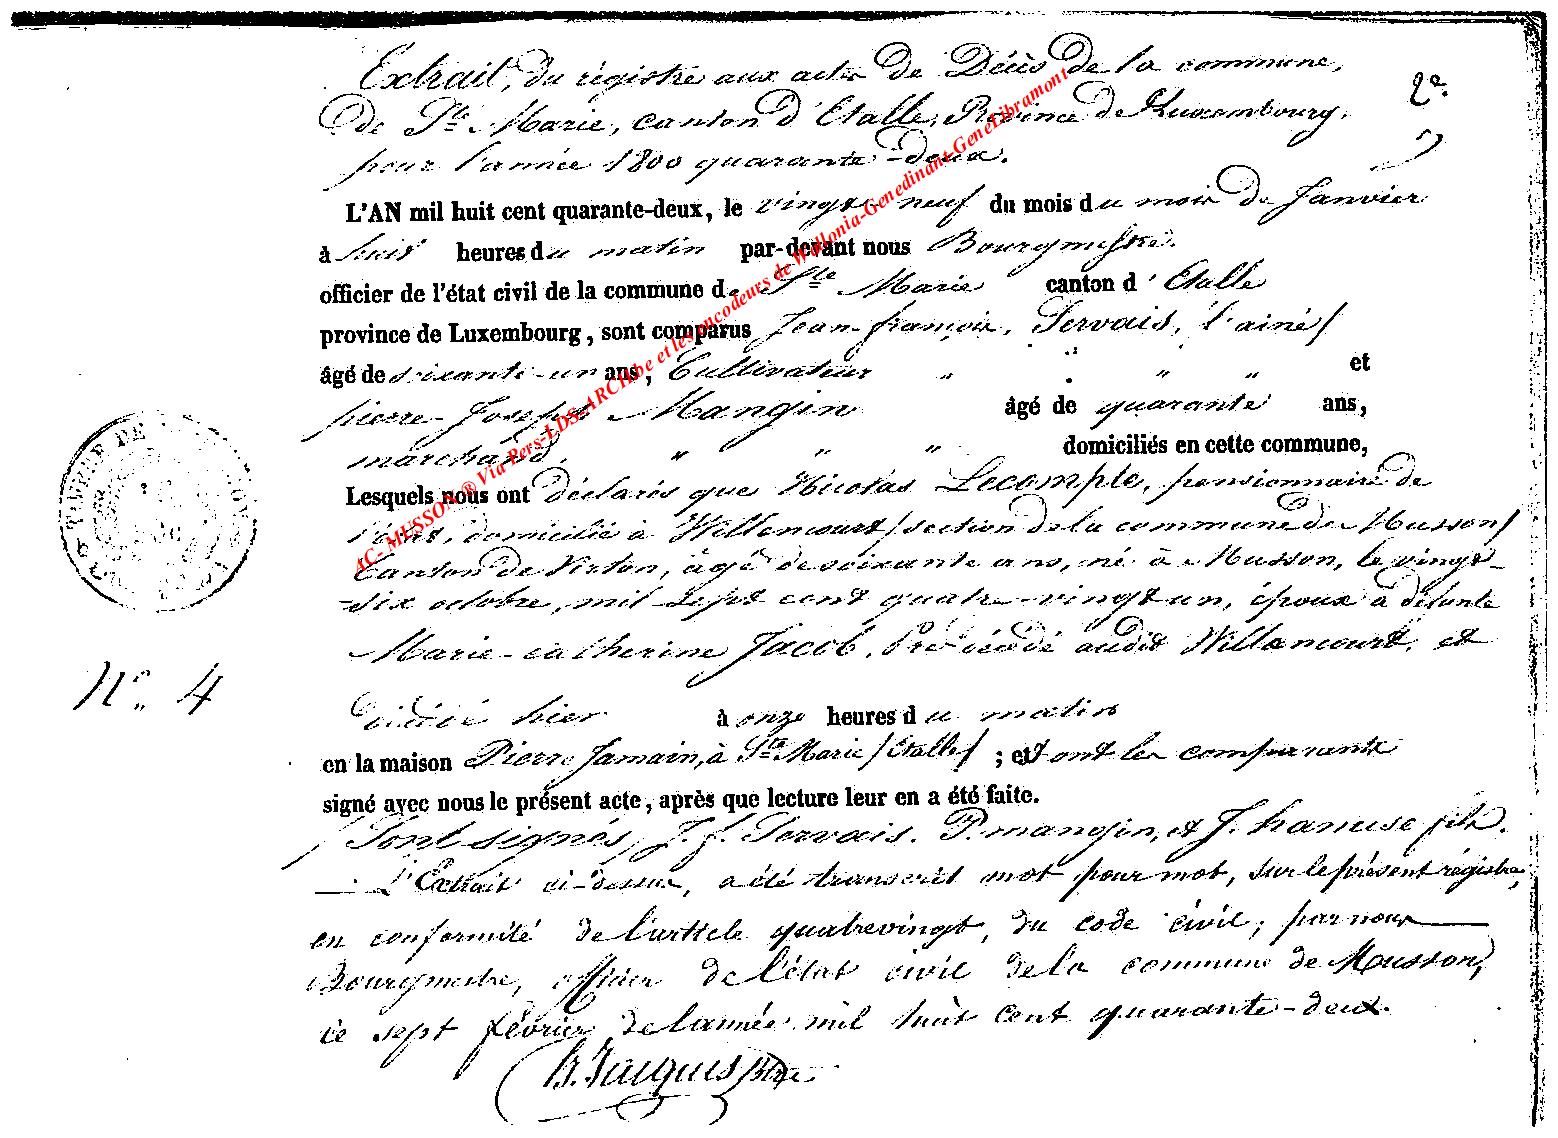 Extrait, du régistre aux actes de Décès de la commune,
de Ste Marie, canton d'Etalle, Province de Luxembourg,
pour l'année 1800 quarante-deux.
2e.
L'AN mil huit cent quarante-deux, le vingt-neuf du mois du mois de Janvier
à huit heures du matin par-devant nous Bourgmestre.
officier de l'état civil de la commune de Ste Marie canton d'Etalle
province de Luxembourg, sont comparus Jean-françois, Servais, l'ainé/
âgé de soixante-un ans, Cultivateur " " " et
pierre-Joseph Mangin âgé de quarante ans,
marchand, " " " domiciliés en cette commune,
Lesquels nous ont déclarés que Nicolas Lecomple, pensionnaire de
l'état, domicilié à Willencourt/section de la commune de Musson/
Canton de Virton, âgé de soixante ans, né à Musson, le vingt-
-six octobre, mil-sept cent quatre-vingt un, époux à défunte
Marie-catherine Jacob, Pré-décédé audit Willancourt, et
N° 4
décédé hier à onze heures du matin
en la maison Pierre Jamain, à Ste Marie/Etalle/ ; et ont les comparants
signé avec nous le présent acte, après que lecture leur en a été faite.
/Sont signés, J. f. Servais. P. mangin, et J. hanuse fils.
— L'Extrait ci-dessus, a été transcrit mot pour mot, sur le présent régistre,
en conformité de l'article quatrevingt, du code civil, par nous
Bourgmestre, officier de l'état civil de la commune de Musson,
ce sept février de l'année mil huit cent quarante-deux.
Jacques
AC- MUSSON ® Via Pers-LDS-ARCH.be et les encodeurs de Wallonia-Genedinant-GeneLibramont